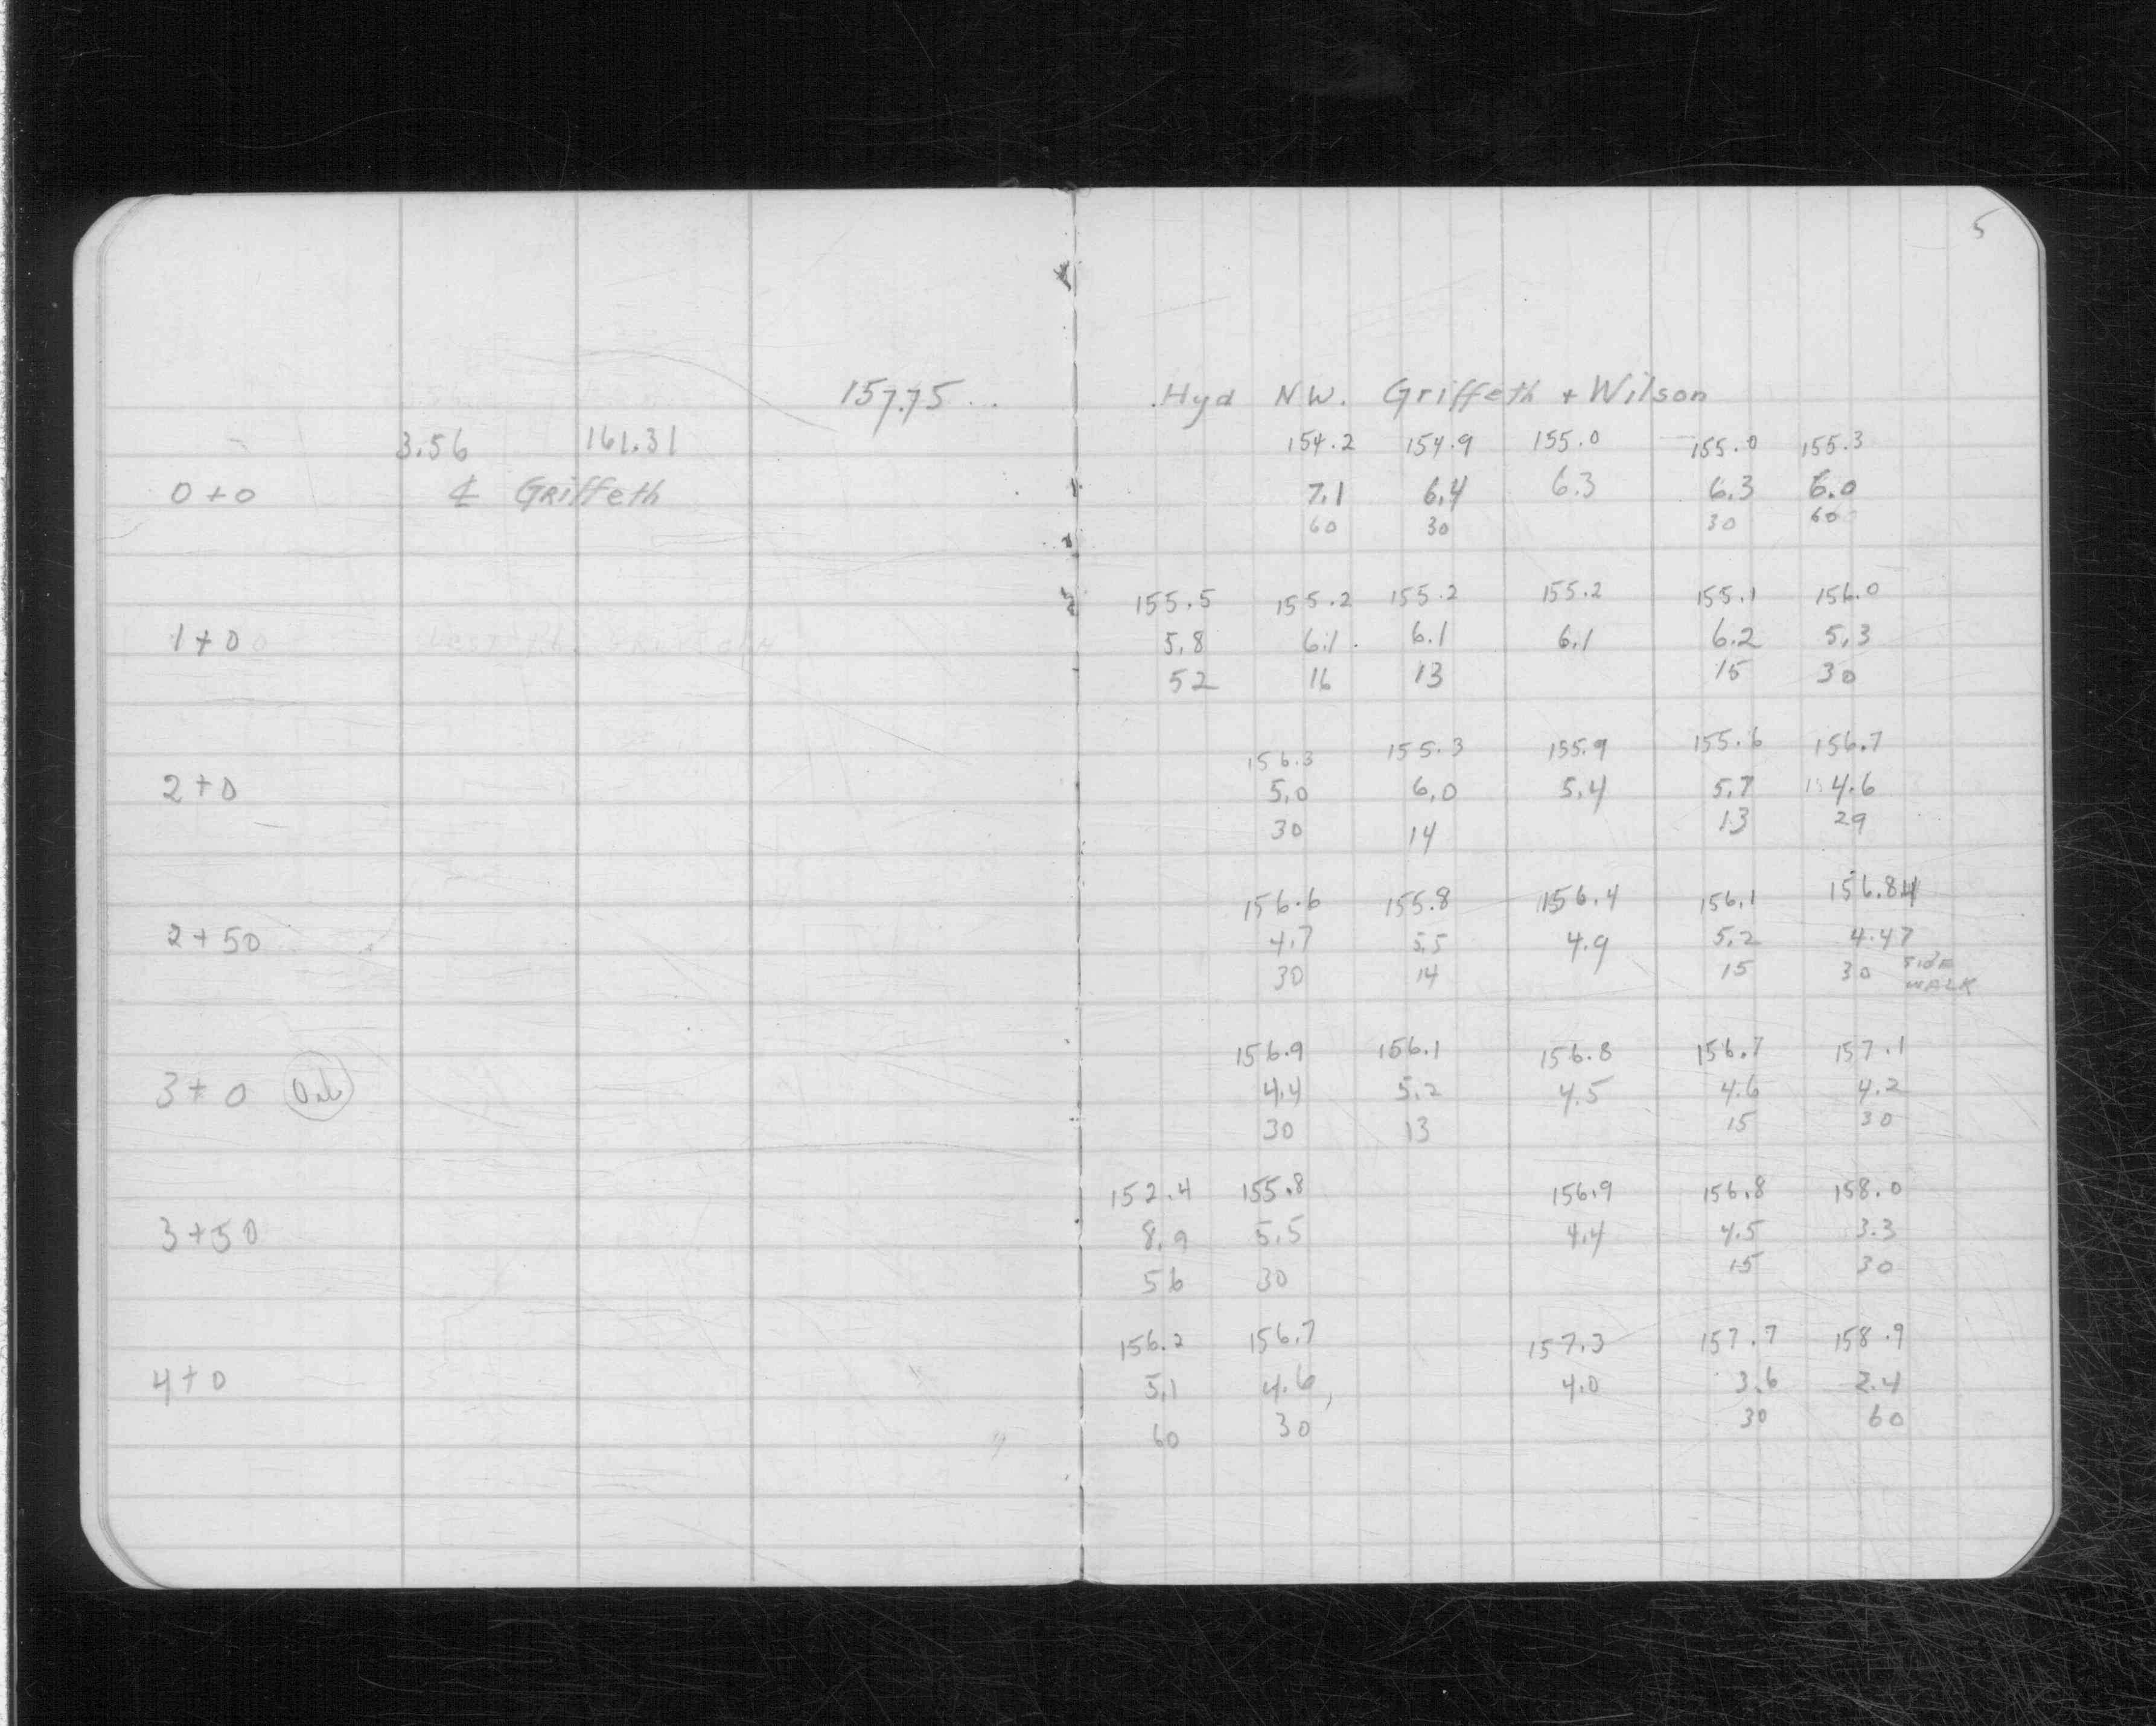 5
157.75 Hyd NW. Griffeth + Wilson
3.56 161.31 154.2 154.9 155.0 155.0 155.3
0+0 ℄ Griffeth 7.1 6.4 6.3 6.3 6.0
60 30 30 60
155.5 155.2 155.2 155.2 155.1 156.0
1+0 5.8 6.1 6.1 6.1 6.2 5.3
52 16 13 15 30
156.3 155.3 155.9 155.6 156.7
2+0 5.0 6.0 5.4 5.7 4.6
30 14 13 29
156.6 155.8 156.4 156.1 156.84
2+50 4.7 5.5 4.9 5.2 4.47
30 14 15 30 SIDE
WALK
156.9 156.1 156.8 156.7 157.1
3+0 4.4 5.2 4.5 4.6 4.2
30 13 15 30
152.4 155.8 156.9 156.8 158.0
3+50 8.9 5.5 4.4 4.5 3.3
56 30 15 30
156.2 156.7 157.3 157.7 158.9
4+0 5.1 4.6 4.0 3.6 2.4
60 30 30 60